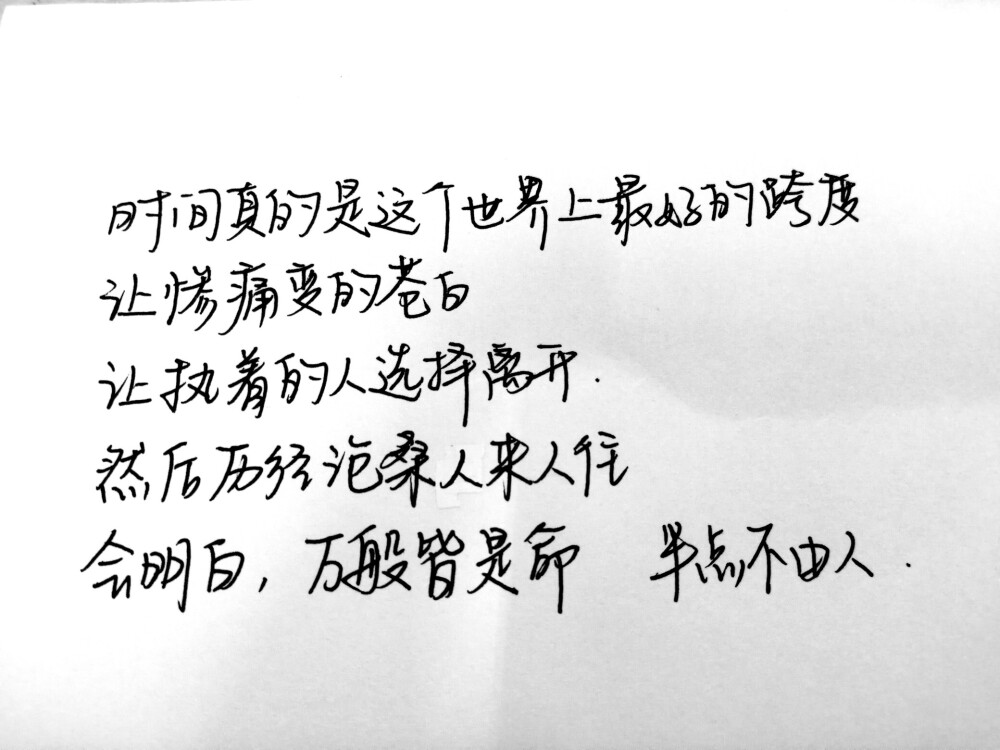 时间真的是这个世界上最好的跨度
让惨痛变的苍白
让执着的人选择离开.
然后历经沧桑人来人往
会明白，万般皆是命 半点不由人.